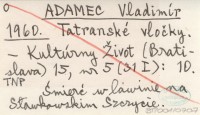 O ADAMEC Vladimír
1960. Tatranské vločky.
- Kultúrny Život (Brati-
slava) 15, nr 5 (31 I): 10.
TNP
Śmierć w lawinie na
Sławkowskim Szczycie.